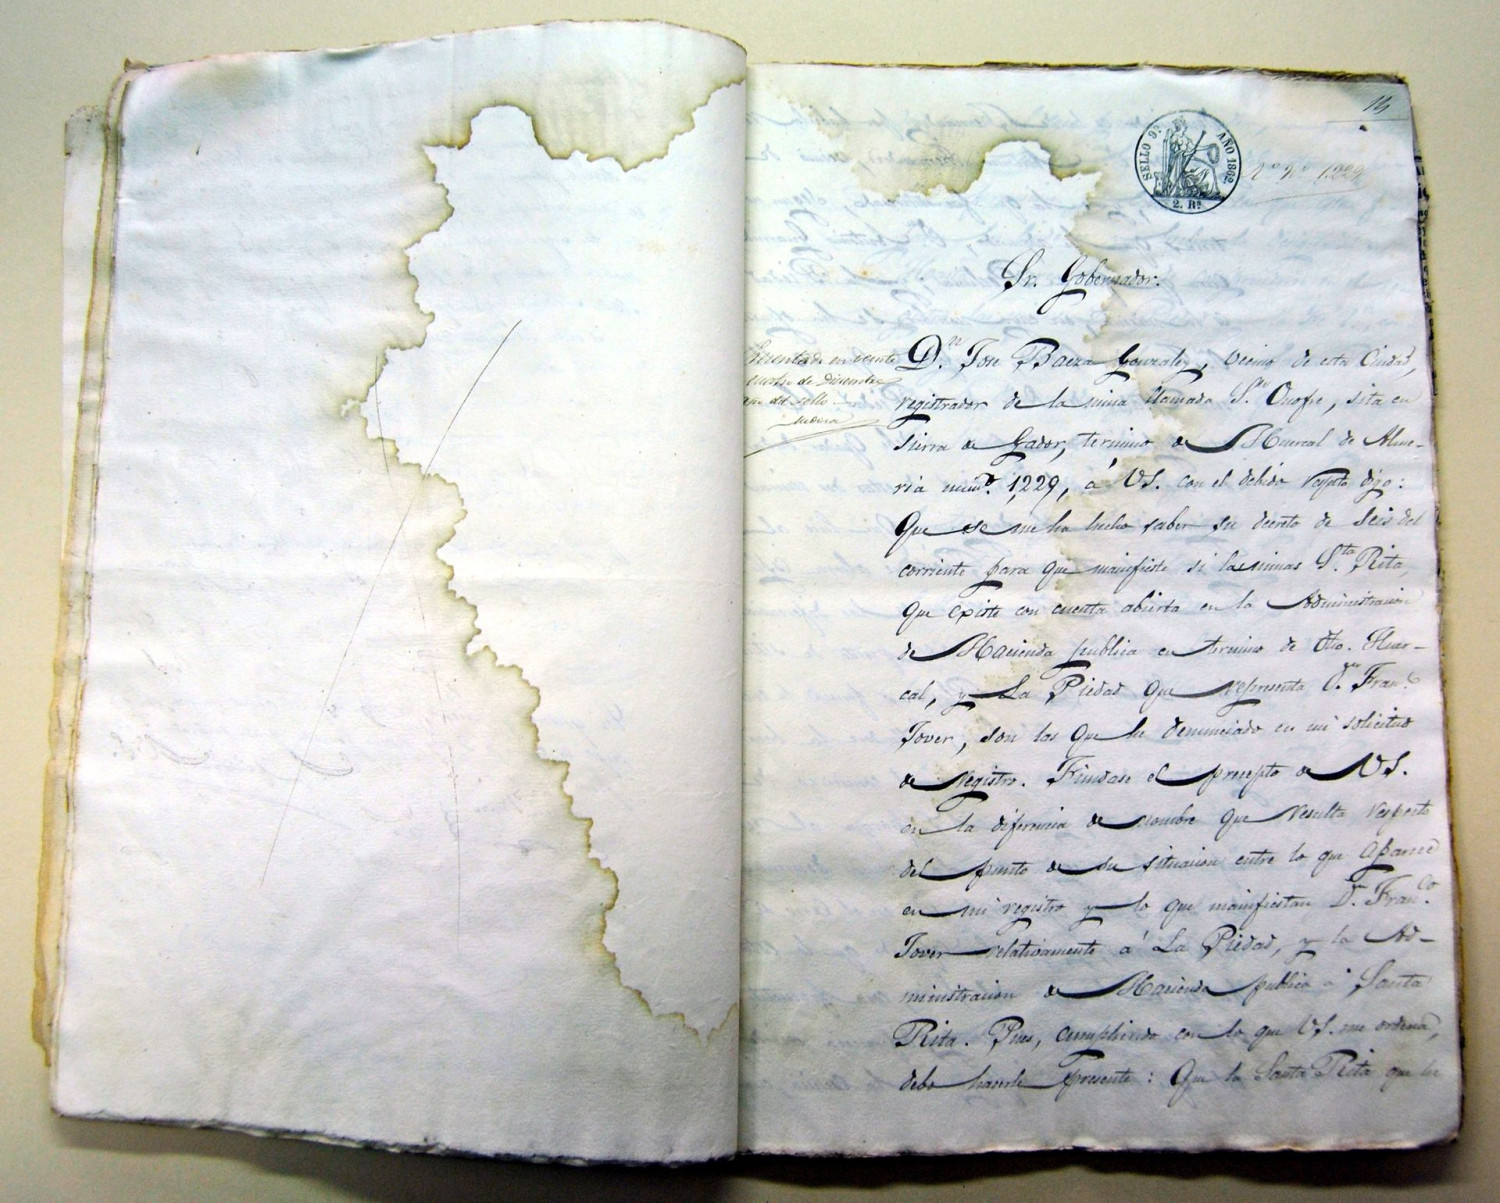 14
SELLO 9º AÑO 1862.
2. Rs
Nº 1229
Sr. Gobernador.
Presentado en veinte
cuatro de Diciembre
del sello
Dn. Jose Baeza Gonzalez, vecino de esta Ciudad,
registrador de la mina llamada Sn. Onofre, sita en
Sierra de Gador, termino de Huercal de Alme-
ria numo. 1,229, á VS. con el debido respto dijo:
Que se me ha hecho saber su decreto de seis del
corriente para que manifieste si las minas Sta. Rita,
que existe con cuenta abierta en la Administracion
de Hacienda publica en termino de dho. Huer-
cal, y La Piedad que representa Dn. Franco.
Jover, son las que he denunciado en mi solicitud
de registro. Fúndase el precepto de VS.
en la diferencia de nombre que resulta respecto
del punto de su situacion entre lo que aparece
en mi registro y lo que manifiestan Dn. Franco.
Jover relativamente á La Piedad, y la Ad-
ministracion de Hacienda publica á Santa
Rita. Pues, cumpliendo con lo que VS. me ordena,
debo hacerle presente: Que la Santa Rita que he